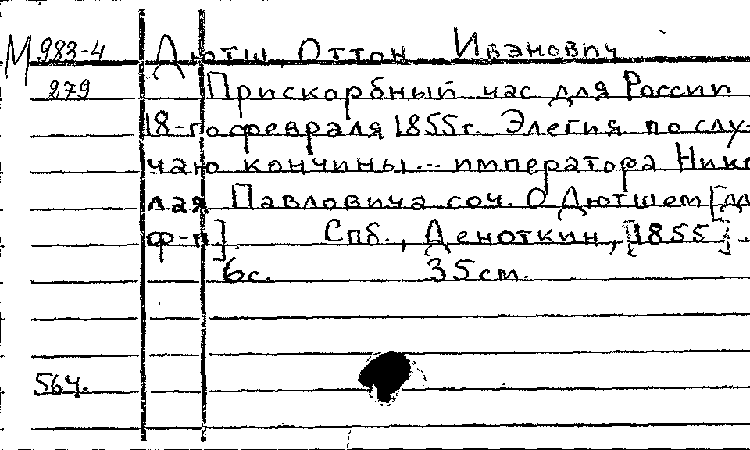 М 983-4 Дютш, Оттон Иванович
279 Прискорбный час для России
18-го февраля 1855г. Элегия по слу-
чаю кончины... императора Нико
лая Павловича соч. О Дютшем [дл
ф-п] Спб., Деноткин, [1855].
6с. 35см.
564.